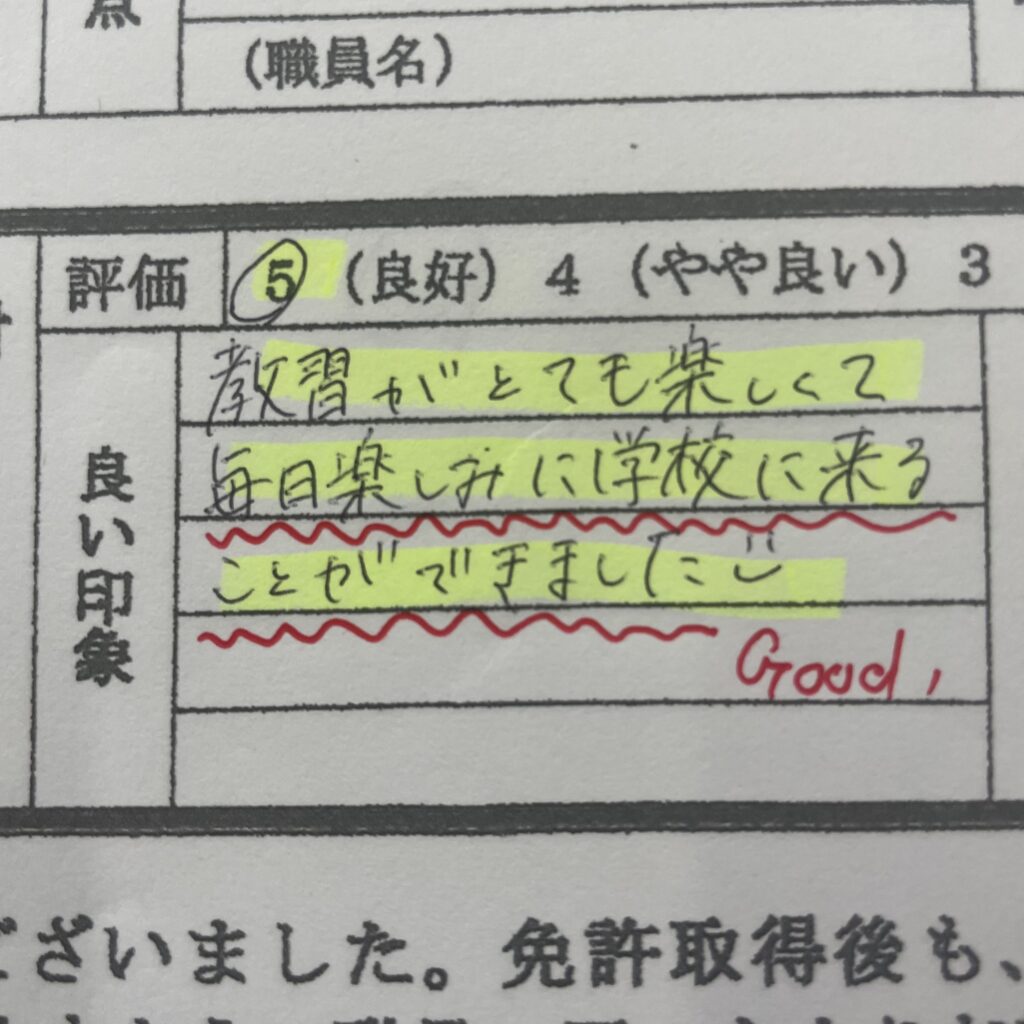 点
(職員名)
評価 5 (良好) 4 (やや良い) 3
良い印象
教習がとても楽しくて
毎日楽しみに学校に来る
ことができました
Good,
ございました。免許取得後も、